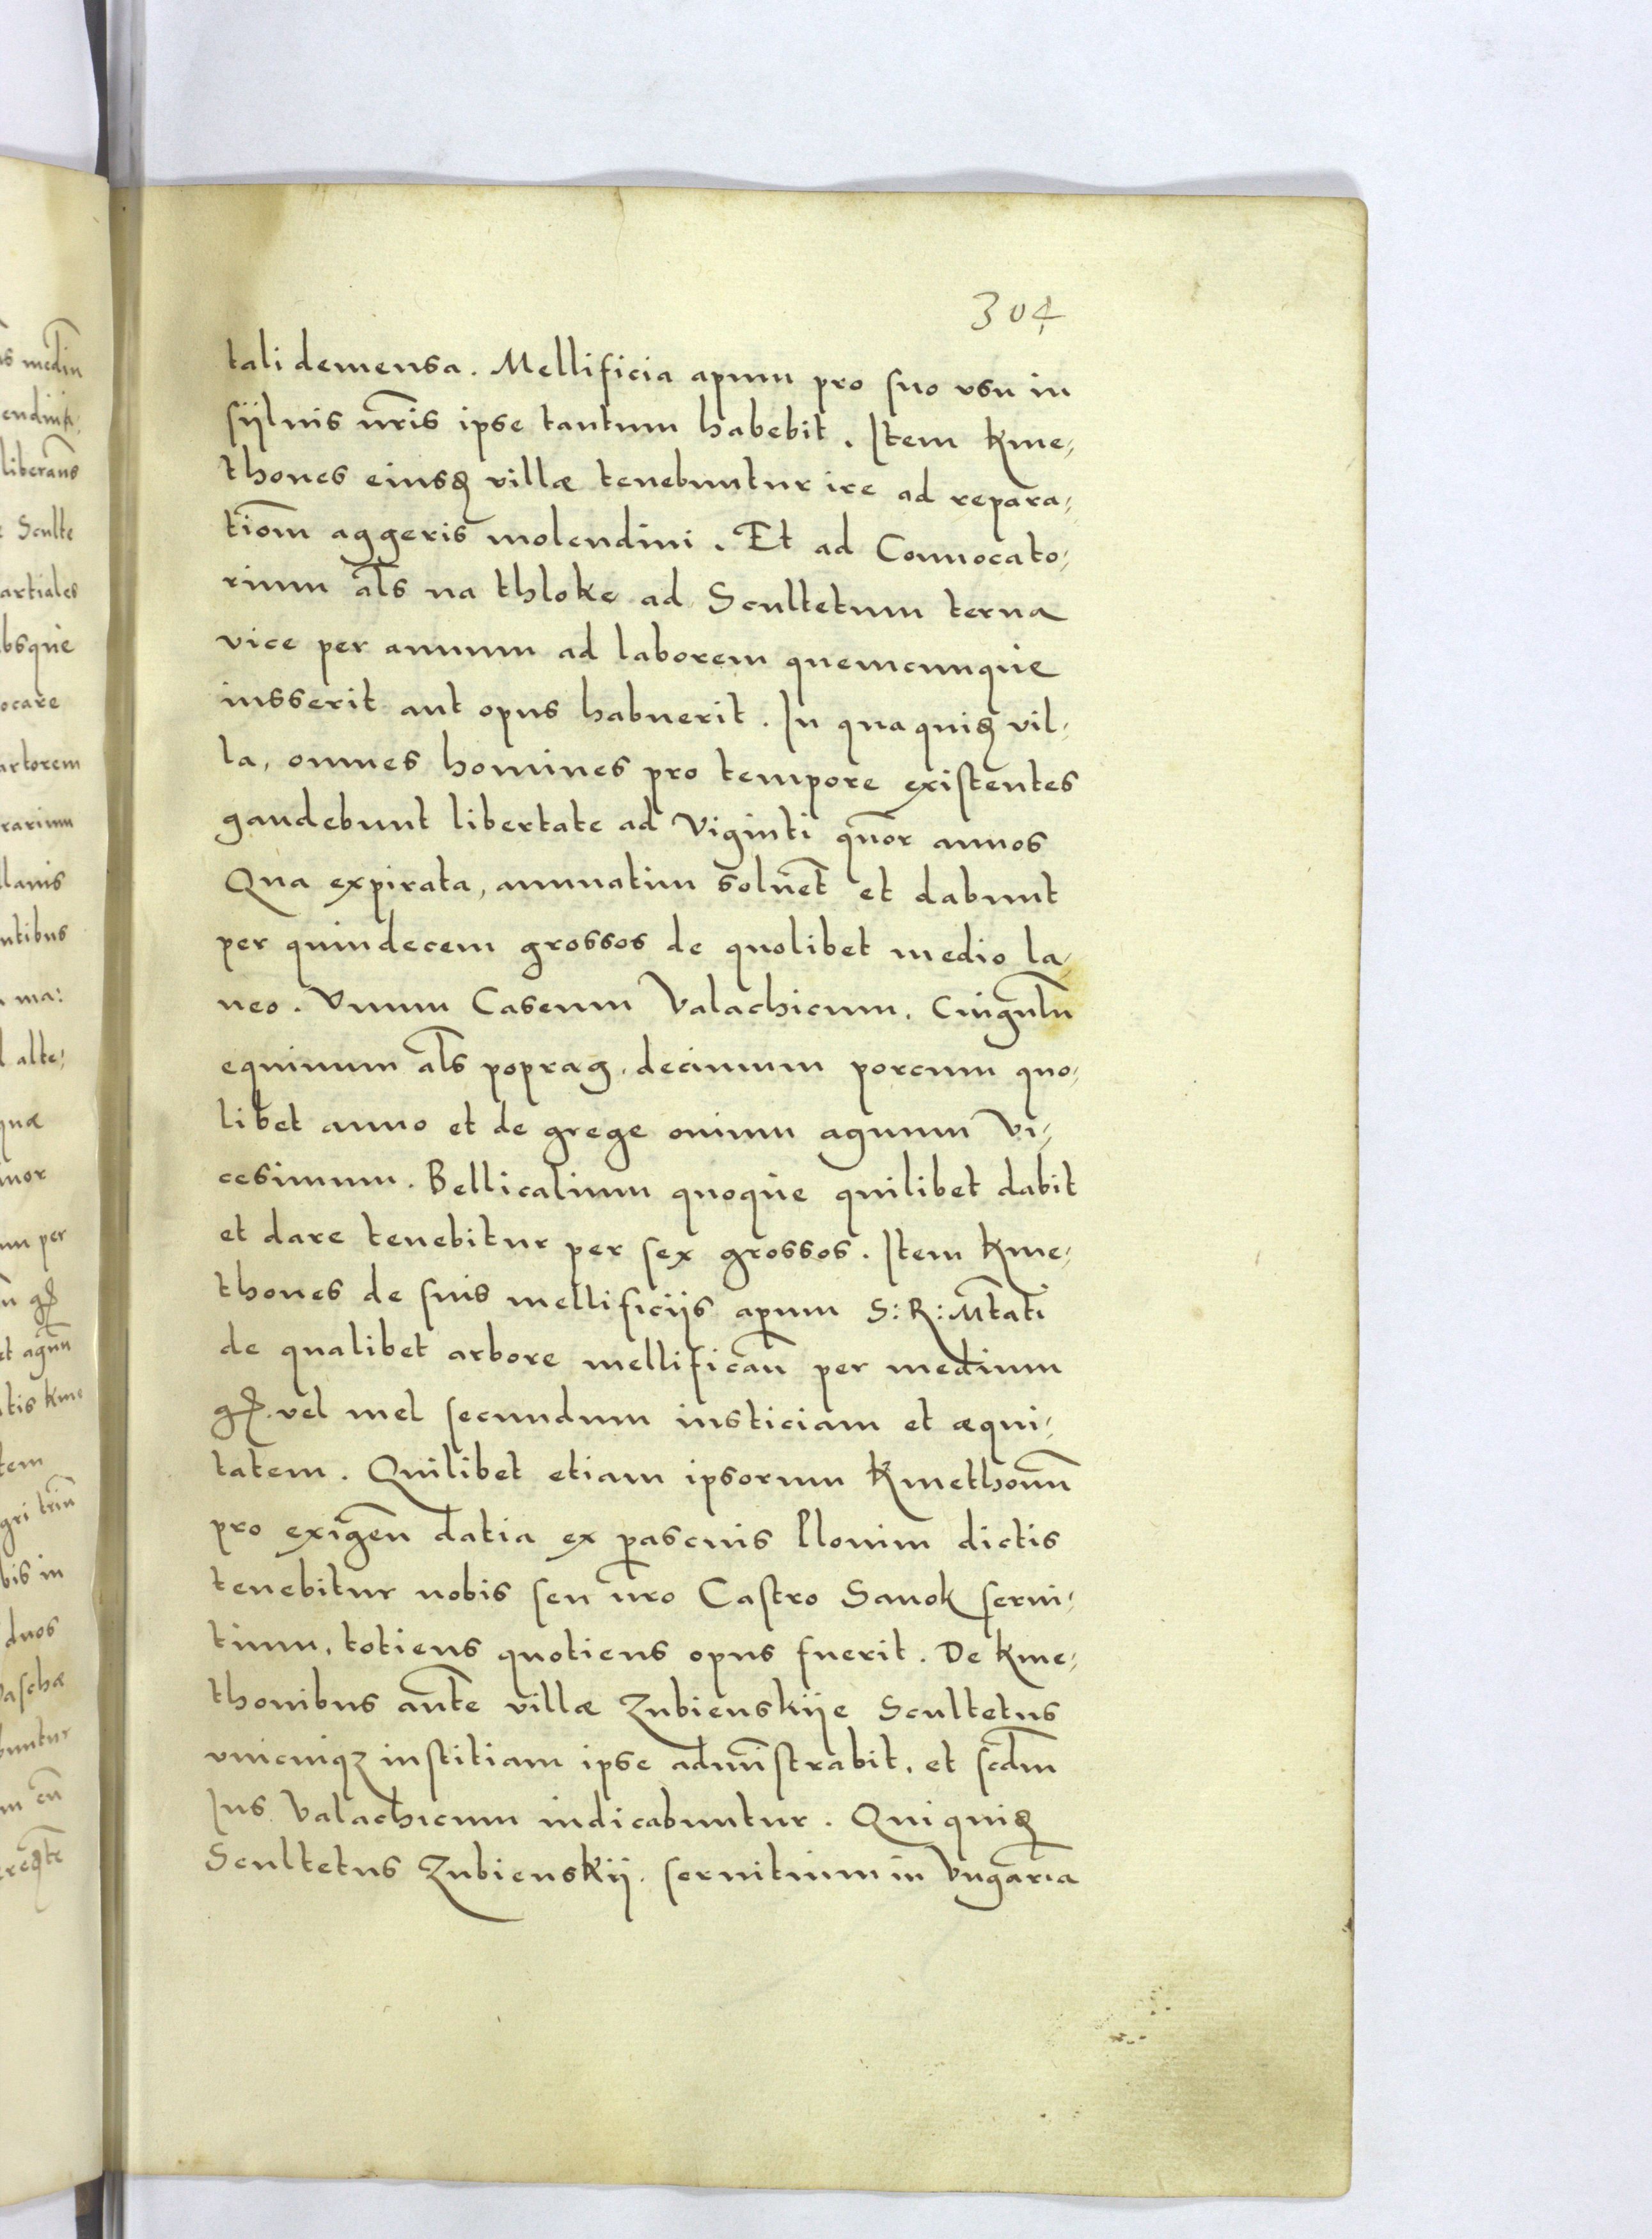 304
tali demensa. Mellificia apum pro suo vsu in
sÿluis nr̃is ipse tantum habebit. Item Kme,
thones eiusꝗ villæ tenebuntur ire ad repara,
tiom̃ aggeris molendini. Et ad Conuocato,
rium al̃s na thloke ad Scultetum terna
vice per annum ad laborem quemcunque
iusserit aut opus habuerit. In qua quiꝗ vil,
la, omnes homines pro tempore existentes
gaudebunt libertate ad Viginti quõr annos
Qua expirata, annuatim soluẽt et dabunt
per quindecem grossos de quolibet medio la,
neo. Vnum Caseum Valachicum. Cingulũ
equinum al̃s poprag. decimum porcum quo,
libet anno et de grege ouium agnum Vi,
cesimum. Bellicalium quoque quilibet dabit
et dare tenebitur per sex grossos. Item Kme,
thones de suis mellificijs apum S: R: Mtati
de qualibet arbore mellificañ per medium
gꝝ. vel mel secundum iusticiam et æqui,
tatem. Quilibet etiam ipsorum Kmethonũ
pro exigeñ datia ex pascuis Plonim dictis
tenebitur nobis seu nr̃o Castro Sanok serui,
tium, totiens quotiens opus fuerit. De Kme,
thonibus aut̃e villæ Zubienskije Scultetus
vnicuiqꝫ iustitiam ipse admĩstrabit, et scd̃m
Ius Valachicum iudicabuntur. Qui quiꝗ
Scultetus Zubienskij. seruitium in Vngaria
s med̃iu
liberañs
Sculte
artiales
bsque
ocare
artorem
rarium
lanis
ntibus
ma:
alte,
um per
et agnũ
tis Kme
tem
bis in
duos
aschæ
buntur